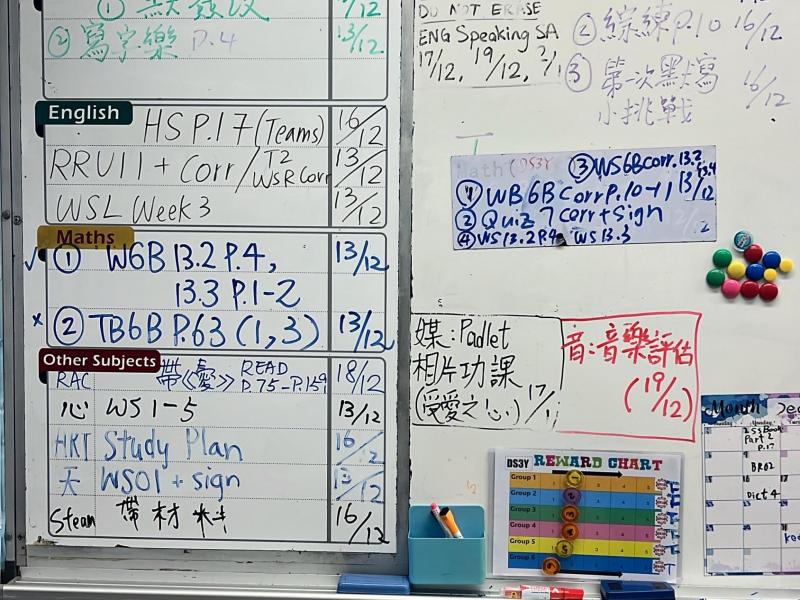 ②寫字樂 P.4 13/12
English
HS P.17 (Teams) 16/12
RRU11 + Corr / T2 WSR Corr 13/12
WSL Week 3 13/12
Maths
✓ ① W6B 13.2 P.4, 13/12
13.3 P.1-2
x ② TB6B P.63 (1,3) 13/12
Other Subjects
RAC 帶《憂》 READ P.75-P.159 18/12
心 WS 1-5 13/12
HKT Study Plan 16/12
天 WS01 + sign 13/12
Steam 帶材料 16/12
DO NOT ERASE
ENG Speaking SA
17/12, 19/12,
② 綜練 P.10 16/12
③ 第一次默寫 16/12
小挑戰
Math (DS3Y
③ WS6B corr. 13.2
① WB 6B Corr P.10-11 13/12
② Quiz 7 corr + sign
④ WS 13.2 P.4 WS 13.3
媒:Padlet
相片功課
(受愛之心) 17/1
音:音樂評估
(19/12)
DS3Y REWARD CHART
Group 1
Group 2
Group 3
Group 4
Group 5
Month
Part 2
P.17
BR02
Dict 4